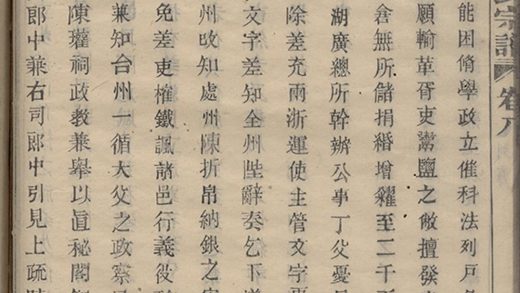 宗譜 卷八
能困脩學政立催科法列戶
願輸革胥吏鬻鹽之敝擅發
倉無所儲捐緡增糴至二千
湖廣總所幹辦公事丁父憂
除差充兩浙運使主管文字
文字差知全州陛辭奏乞下
州改知處州陳折帛納銀之
免差吏榷鐵諷諸邑行義役
兼知台州一循大父之政察
陳瓘祠政敎兼舉以眞秘閣
郎中兼右司郎中引見上疏